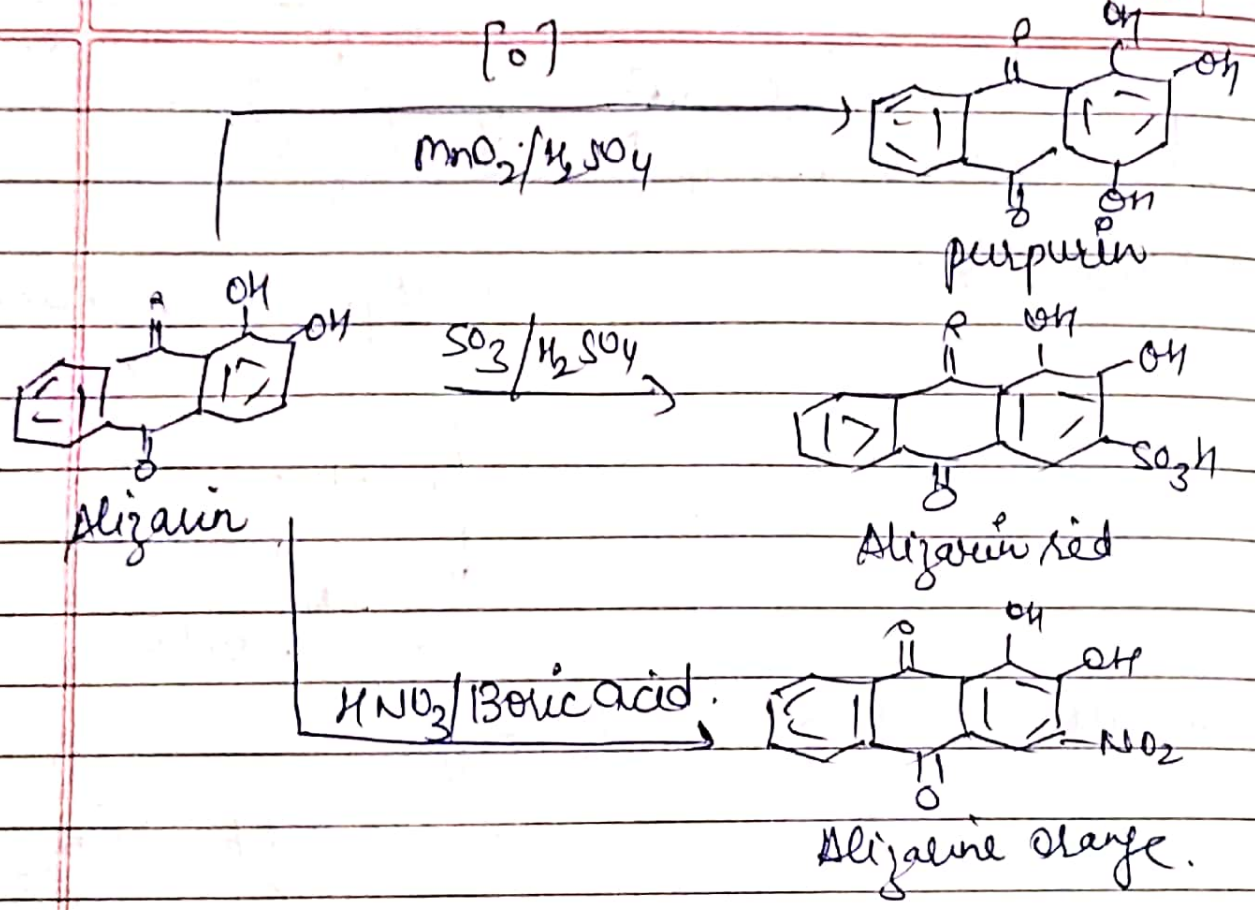 [O]
MnO2/H2SO4
O
OH
OH
O
OH
purpurin
O
OH
OH
O
Alizarin
SO3/H2SO4
O
OH
OH
SO3H
O
Alizarin red
HNO3/Boric acid.
O
OH
OH
NO2
O
Alizarine orange.